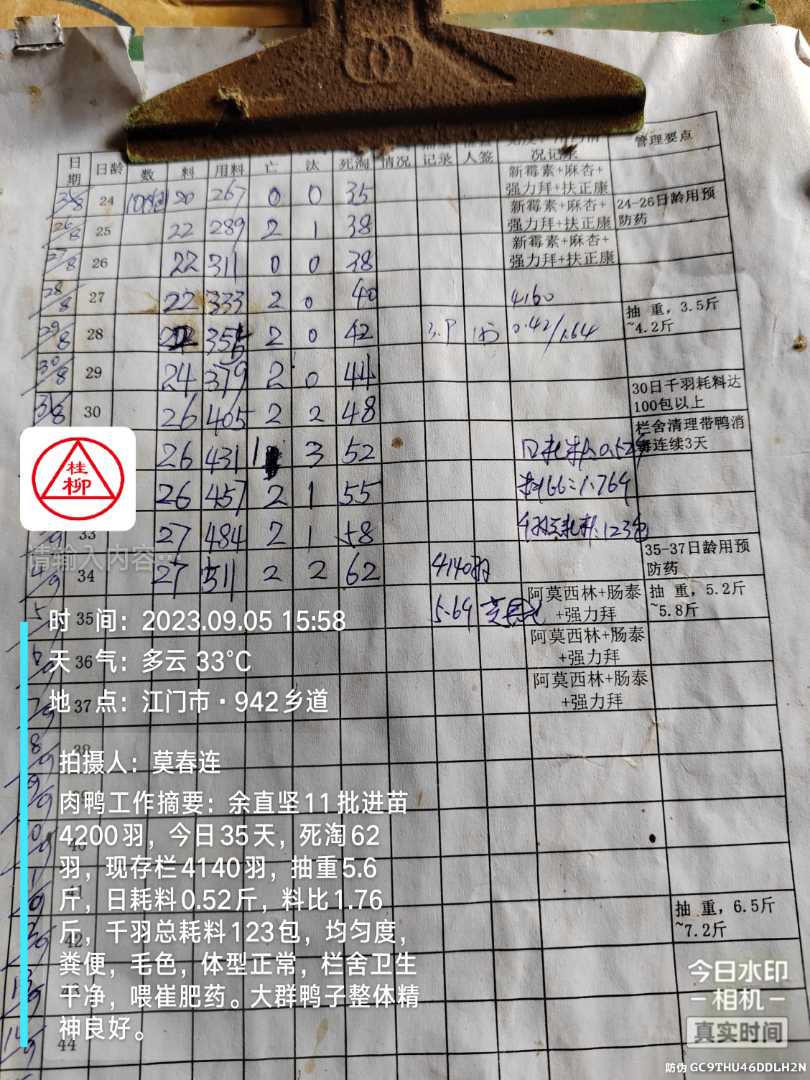 管理要点
日期 日龄 数 料 用料 亡 汰 死淘 情况 记录 人签 况记录
24 20 267 0 0 35 新霉素+麻杏+强力拜+扶正康 24-26日龄用预防药
26/8 25 22 289 2 1 38 新霉素+麻杏+强力拜+扶正康
27/8 26 22 311 0 0 38 新霉素+麻杏+强力拜+扶正康
28/8 27 22 333 2 0 40 4160
29/8 28 355 2 0 42 3.9 0.42/1.64 抽重，3.5斤~4.2斤
30/8 29 24 379 2 0 44
30 26 405 2 2 48 30日千羽耗料达100包以上
26 431 3 52 日耗料0.52 栏舍清理带鸭消毒连续3天
26 457 2 1 55 料比=1.769
33 27 484 2 1 58 千羽总耗料123包
4/9 34 27 511 2 2 62 4140羽 35-37日龄用预防药
35 5.69 阿莫西林+肠泰+强力拜 抽重，5.2斤~5.8斤
36 阿莫西林+肠泰+强力拜
37 阿莫西林+肠泰+强力拜
38
40
41
42 抽重，6.5斤~7.2斤
44
桂柳
请输入内容...
时 间：2023.09.05 15:58
天 气：多云 33℃
地 点：江门市·942乡道
拍摄人：莫春连
肉鸭工作摘要：余直坚11批进苗
4200羽，今日35天，死淘62
羽，现存栏4140羽，抽重5.6
斤，日耗料0.52斤，料比1.76
斤，千羽总耗料123包，均匀度，
粪便，毛色，体型正常，栏舍卫生
干净，喂崔肥药。大群鸭子整体精
神良好。
今日水印
相机
真实时间
防伪 GC9THU46DDLH2N